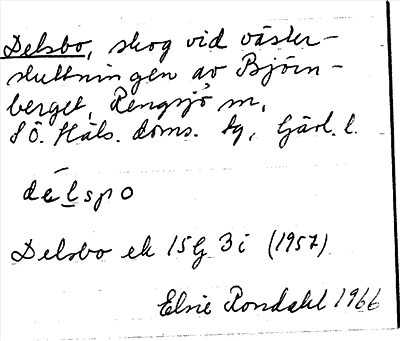 Delsbo, skog vid väster-
sluttningen av Björn-
berget, Rengsjö sn,
SÖ. Häls. doms. tg, Gävl. l.
dé̱lspo
Delsbo ek 15G 3i (1957)
Elsie Rondahl 1966